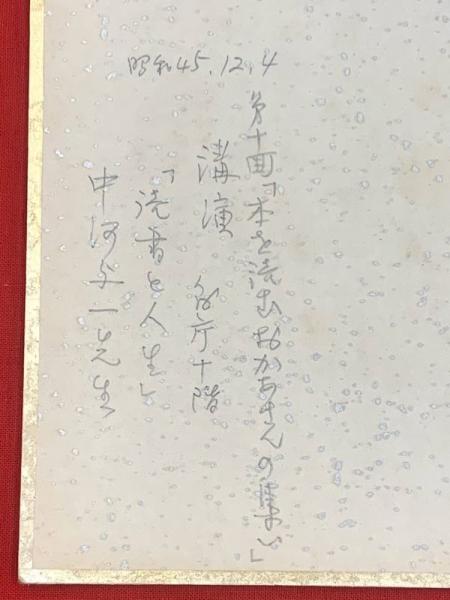 昭和45.12.4
第十回「本を読むおかあさんの集い」
講演 庁十階
「読書と人生」
中河与一先生